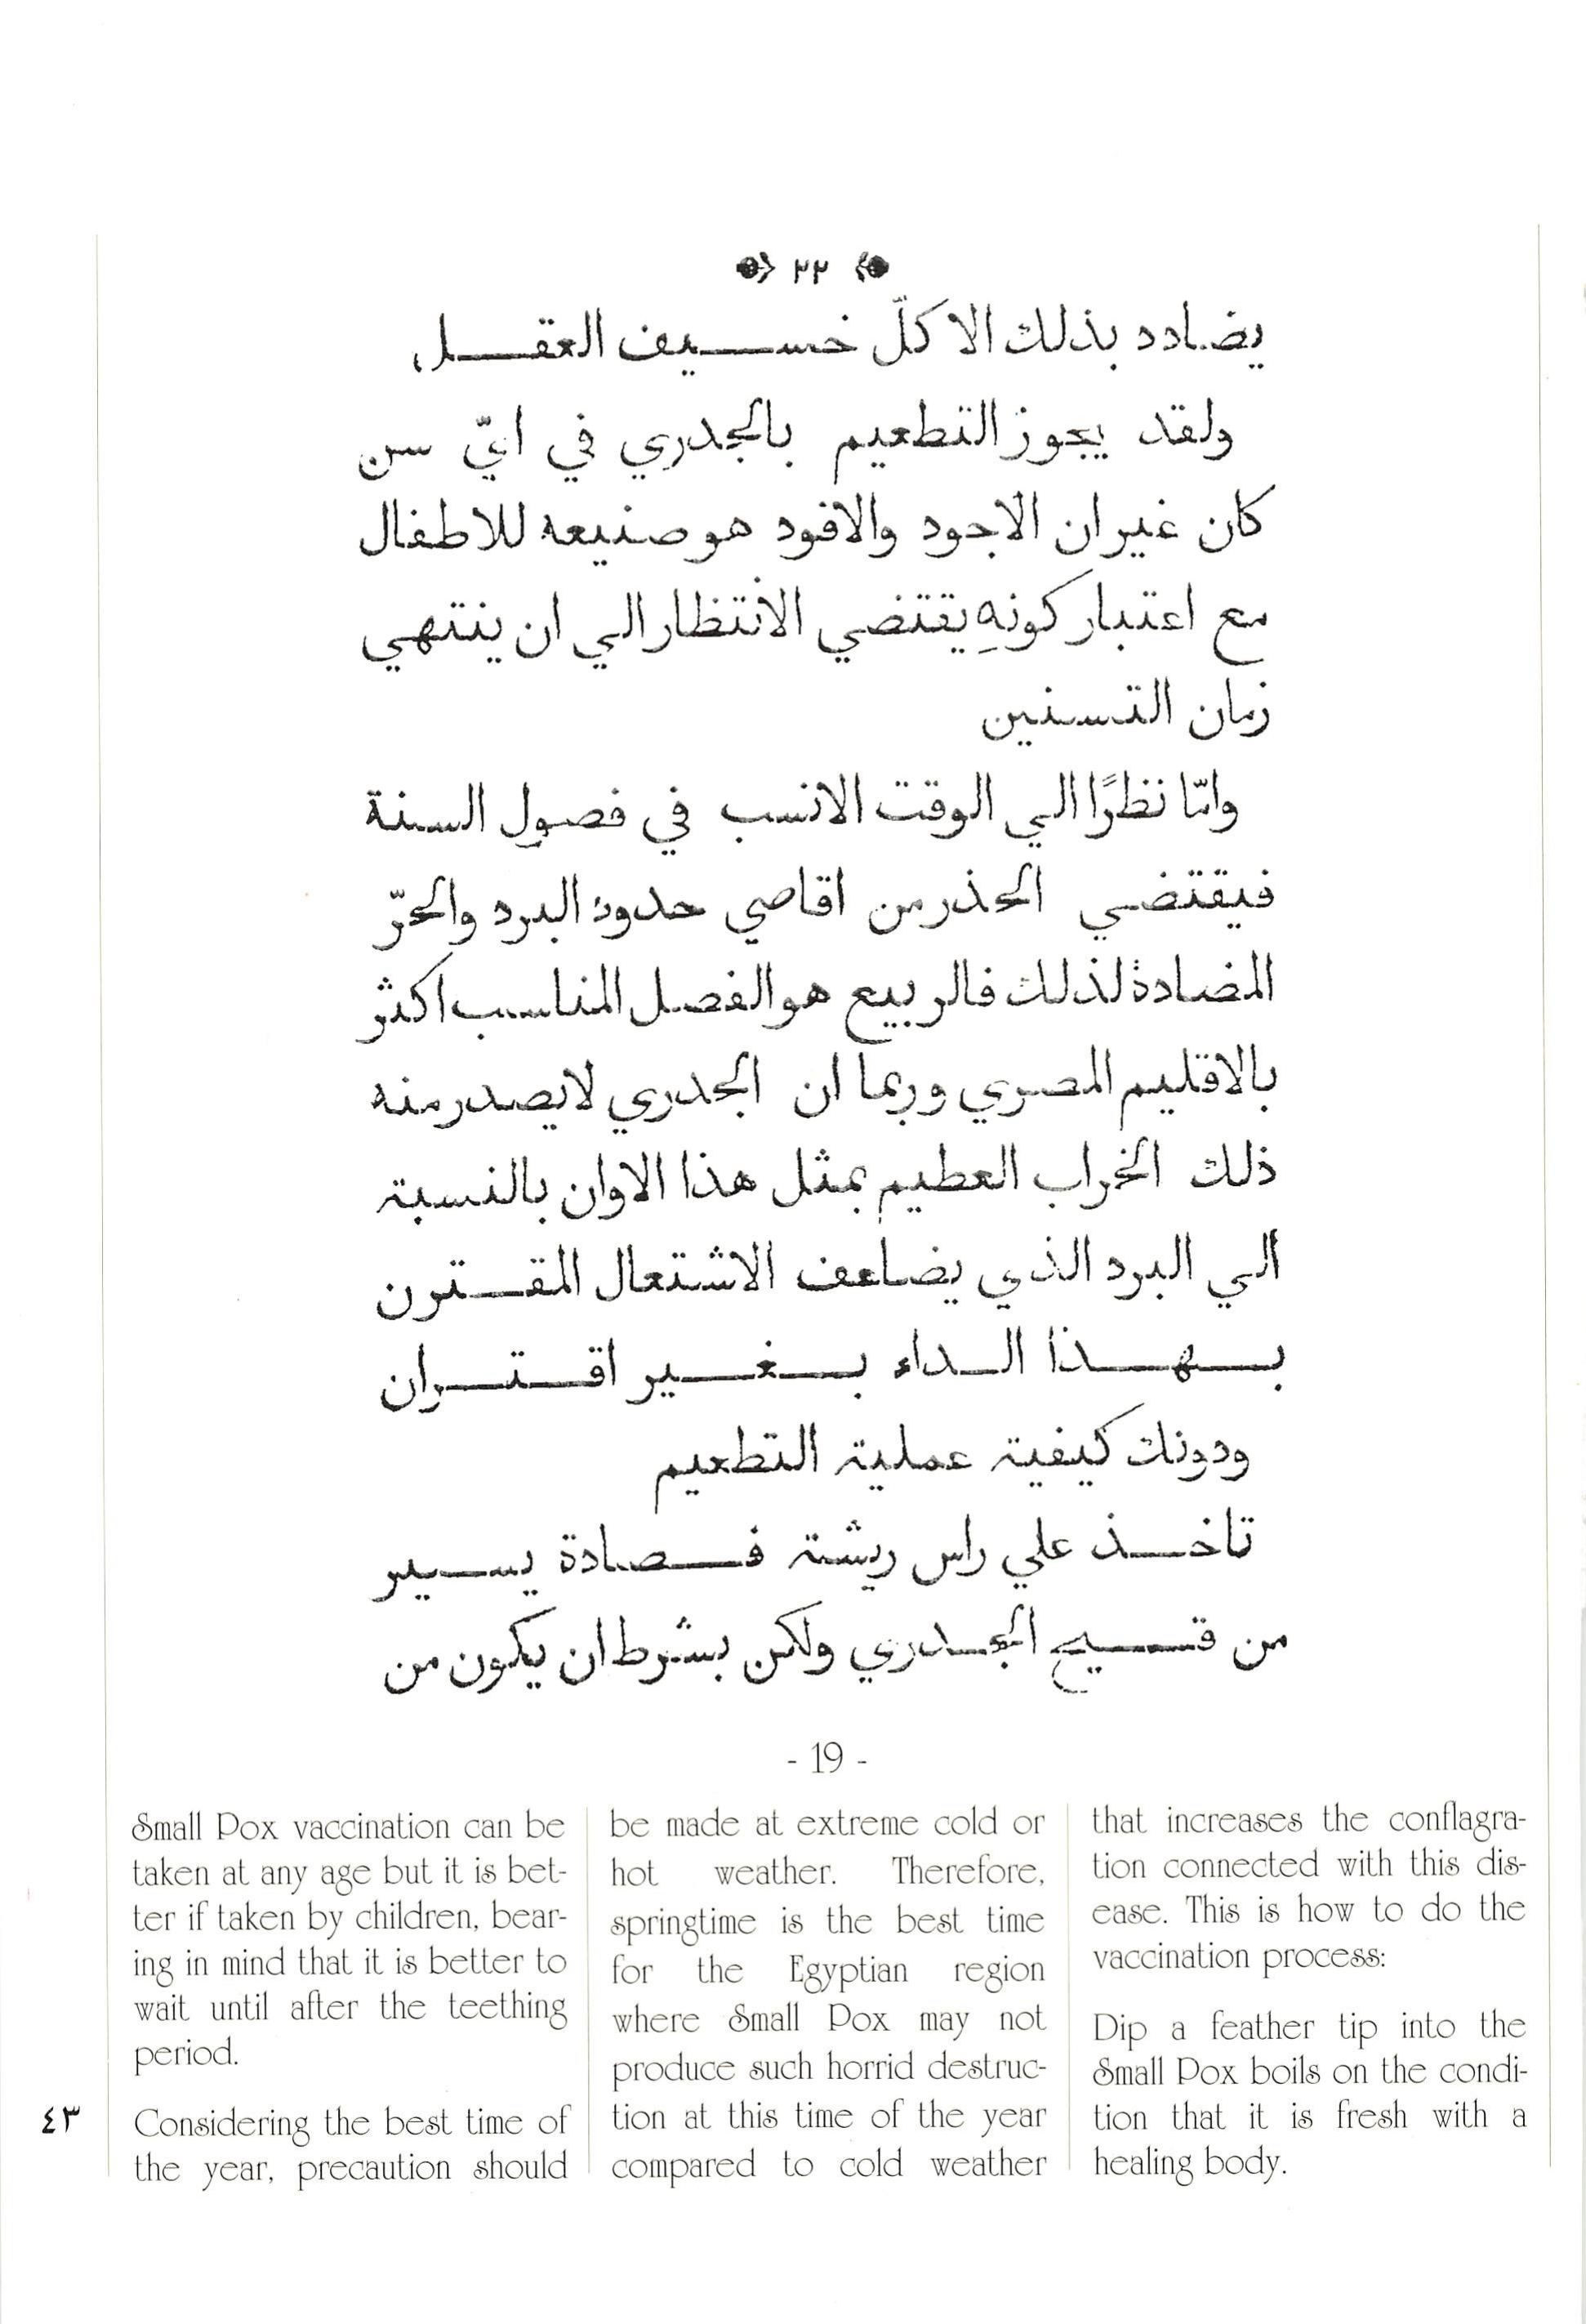 ٢٢
يضادد بذلك الا كلّ خسيف العقل،
ولقد يجوز التطعيم بالجدري في ايّ سن
كان غير ان الاجود والافود هو صنيعه للاطفال
مع اعتبار كونهِ يقتضي الانتظار الي ان ينتهي
زمان التسنين
وامّا نظرًا الي الوقت الانسب في فصول السنة
فيقتضي الحذر من اقاصي حدود البرد والحرّ
المضادة لذلك فالربيع هو الفصل المناسب اكثر
بالاقليم المصري وربما ان الجدري لا يصدر منه
ذلك الخراب العطيم بمثل هذا الاوان بالنسبة
الي البرد الذي يضاعف الاشتعال المقترن
بهذا الداء بغير اقتران
ودونك كيفية عملية التطعيم
تاخذ علي راس ريشة فصادة يسير
من قيح الجدري ولكن بشرط ان يكون من
- 19 -
Small Pox vaccination can be
taken at any age but it is bet-
ter if taken by children, bear-
ing in mind that it is better to
wait until after the teething
period.
Considering the best time of
the year, precaution should
be made at extreme cold or
hot weather. Therefore,
springtime is the best time
for the Egyptian region
where Small Pox may not
produce such horrid destruc-
tion at this time of the year
compared to cold weather
that increases the conflagra-
tion connected with this dis-
ease. This is how to do the
vaccination process:
Dip a feather tip into the
Small Pox boils on the condi-
tion that it is fresh with a
healing body.
٤٣